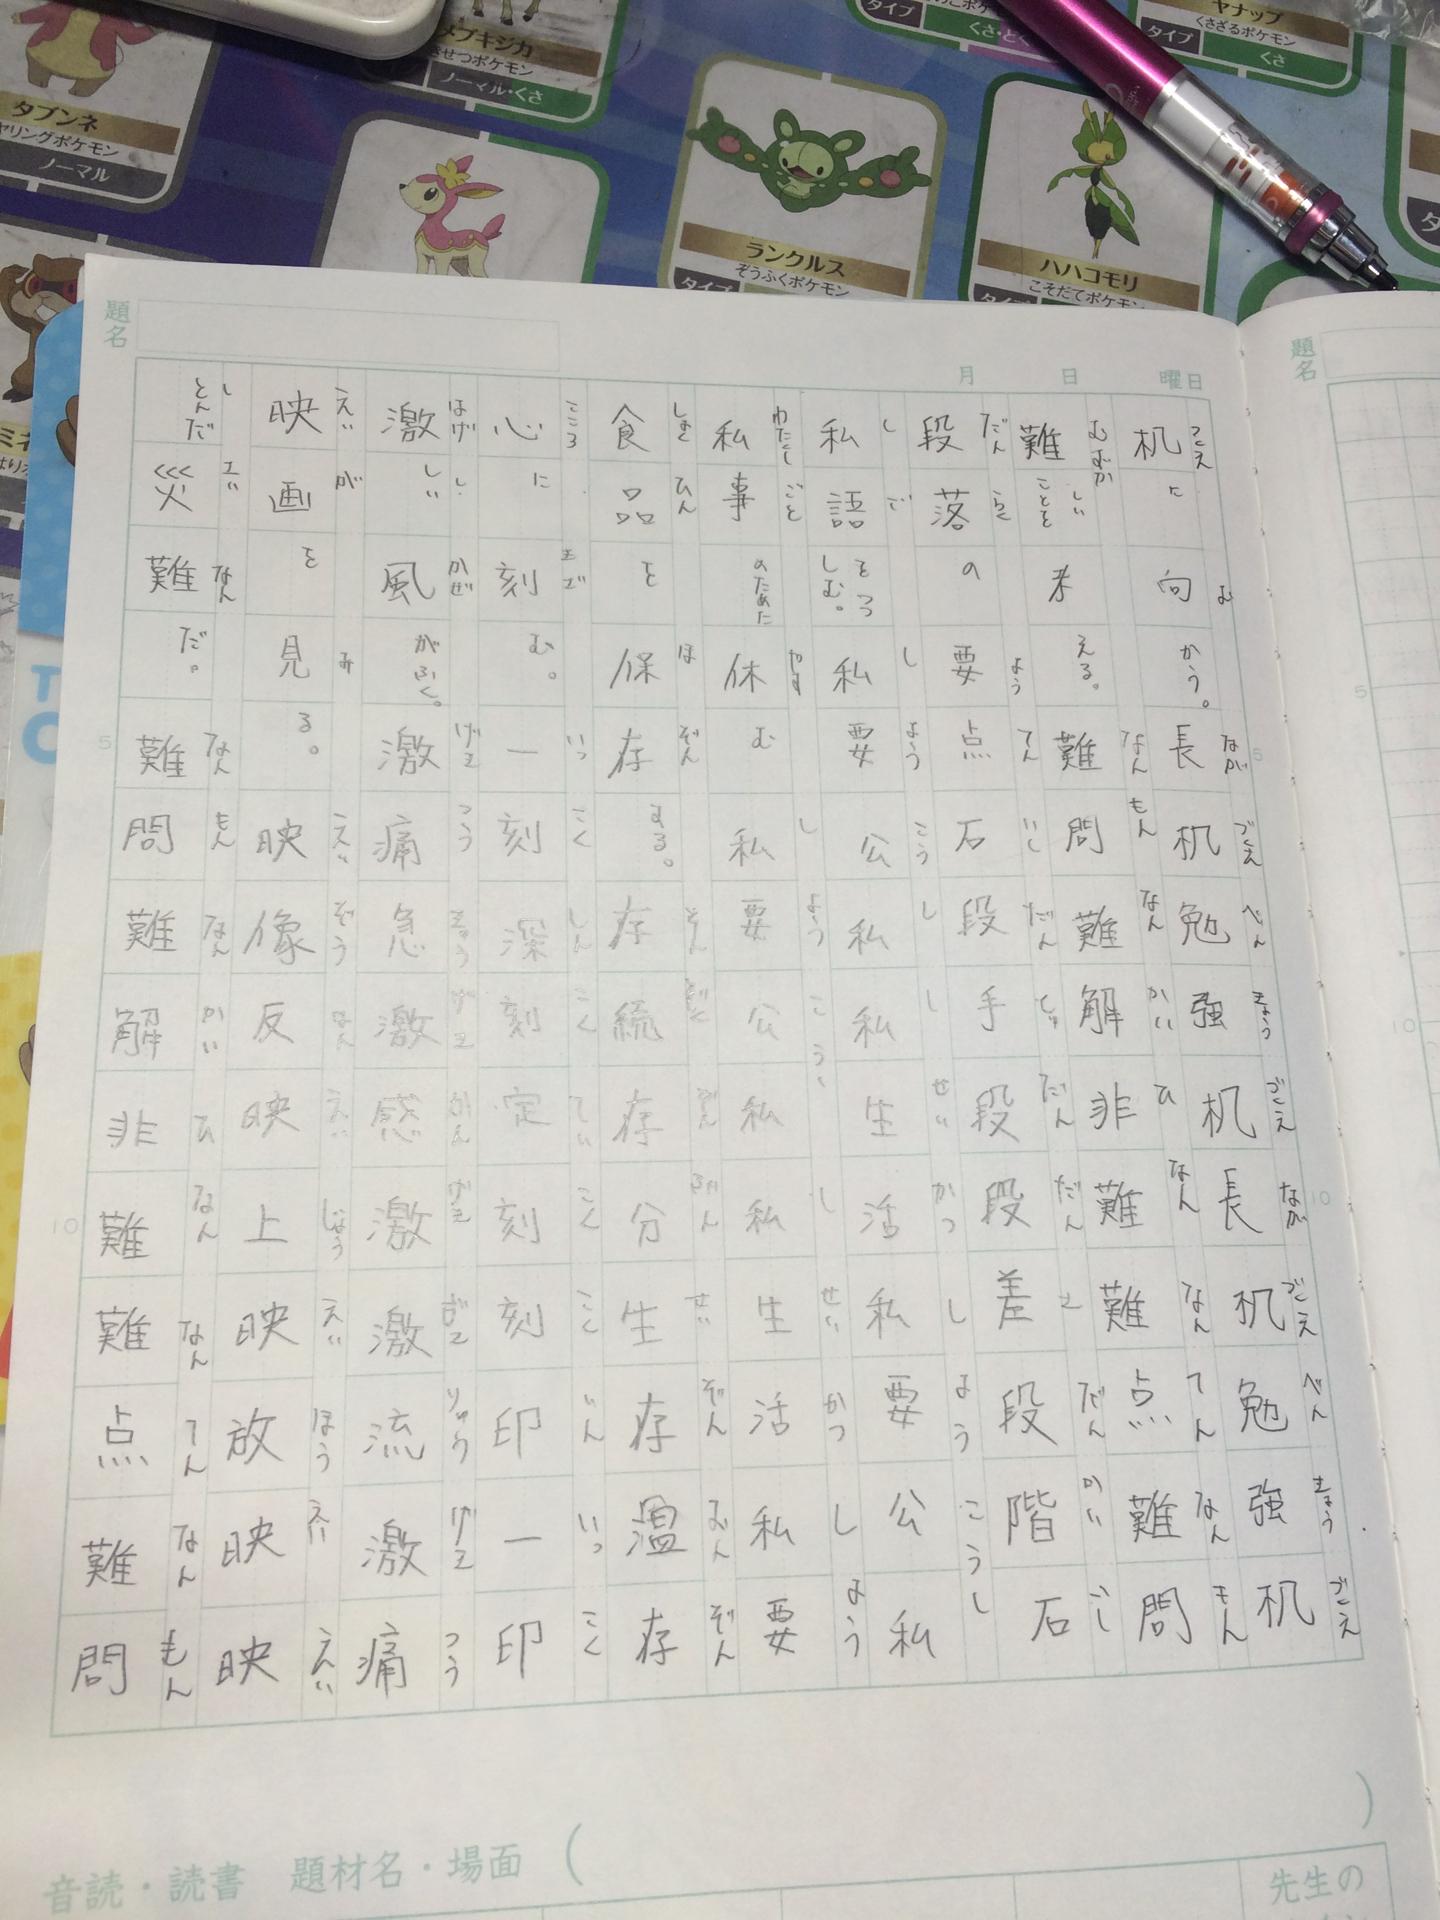 タブンネ
ヤリングポケモン
ノーマル
メブキジカ
きせつポケモン
ノーマル・くさ
ランクルス
ぞうふくポケモン
タイプ
ハハコモリ
こそだてポケモン
タイプ
タイプ
くさ・どく
ヤナップ
くさざるポケモン
タイプ
くさ
題名
月 日 曜日
机に向かう。長机勉強机長机勉強机
難しいことを考える。難問難解非難難点難問
段落の要点石段手段段差段階石
私語をつつしむ。私要公私私生活私要公私
私事のためた休む私要公私私生活私要
食品を保存する。存続存分生存温存
心に刻む。一刻深刻定刻刻印一印
激しい風がふく。激痛急激感激激流激痛
映画を見る。映像反映上映放映映
とんだ災難だ。難問難解非難難点難問
5
10
題名
5
10
音読・読書 題材名・場面( )
先生の